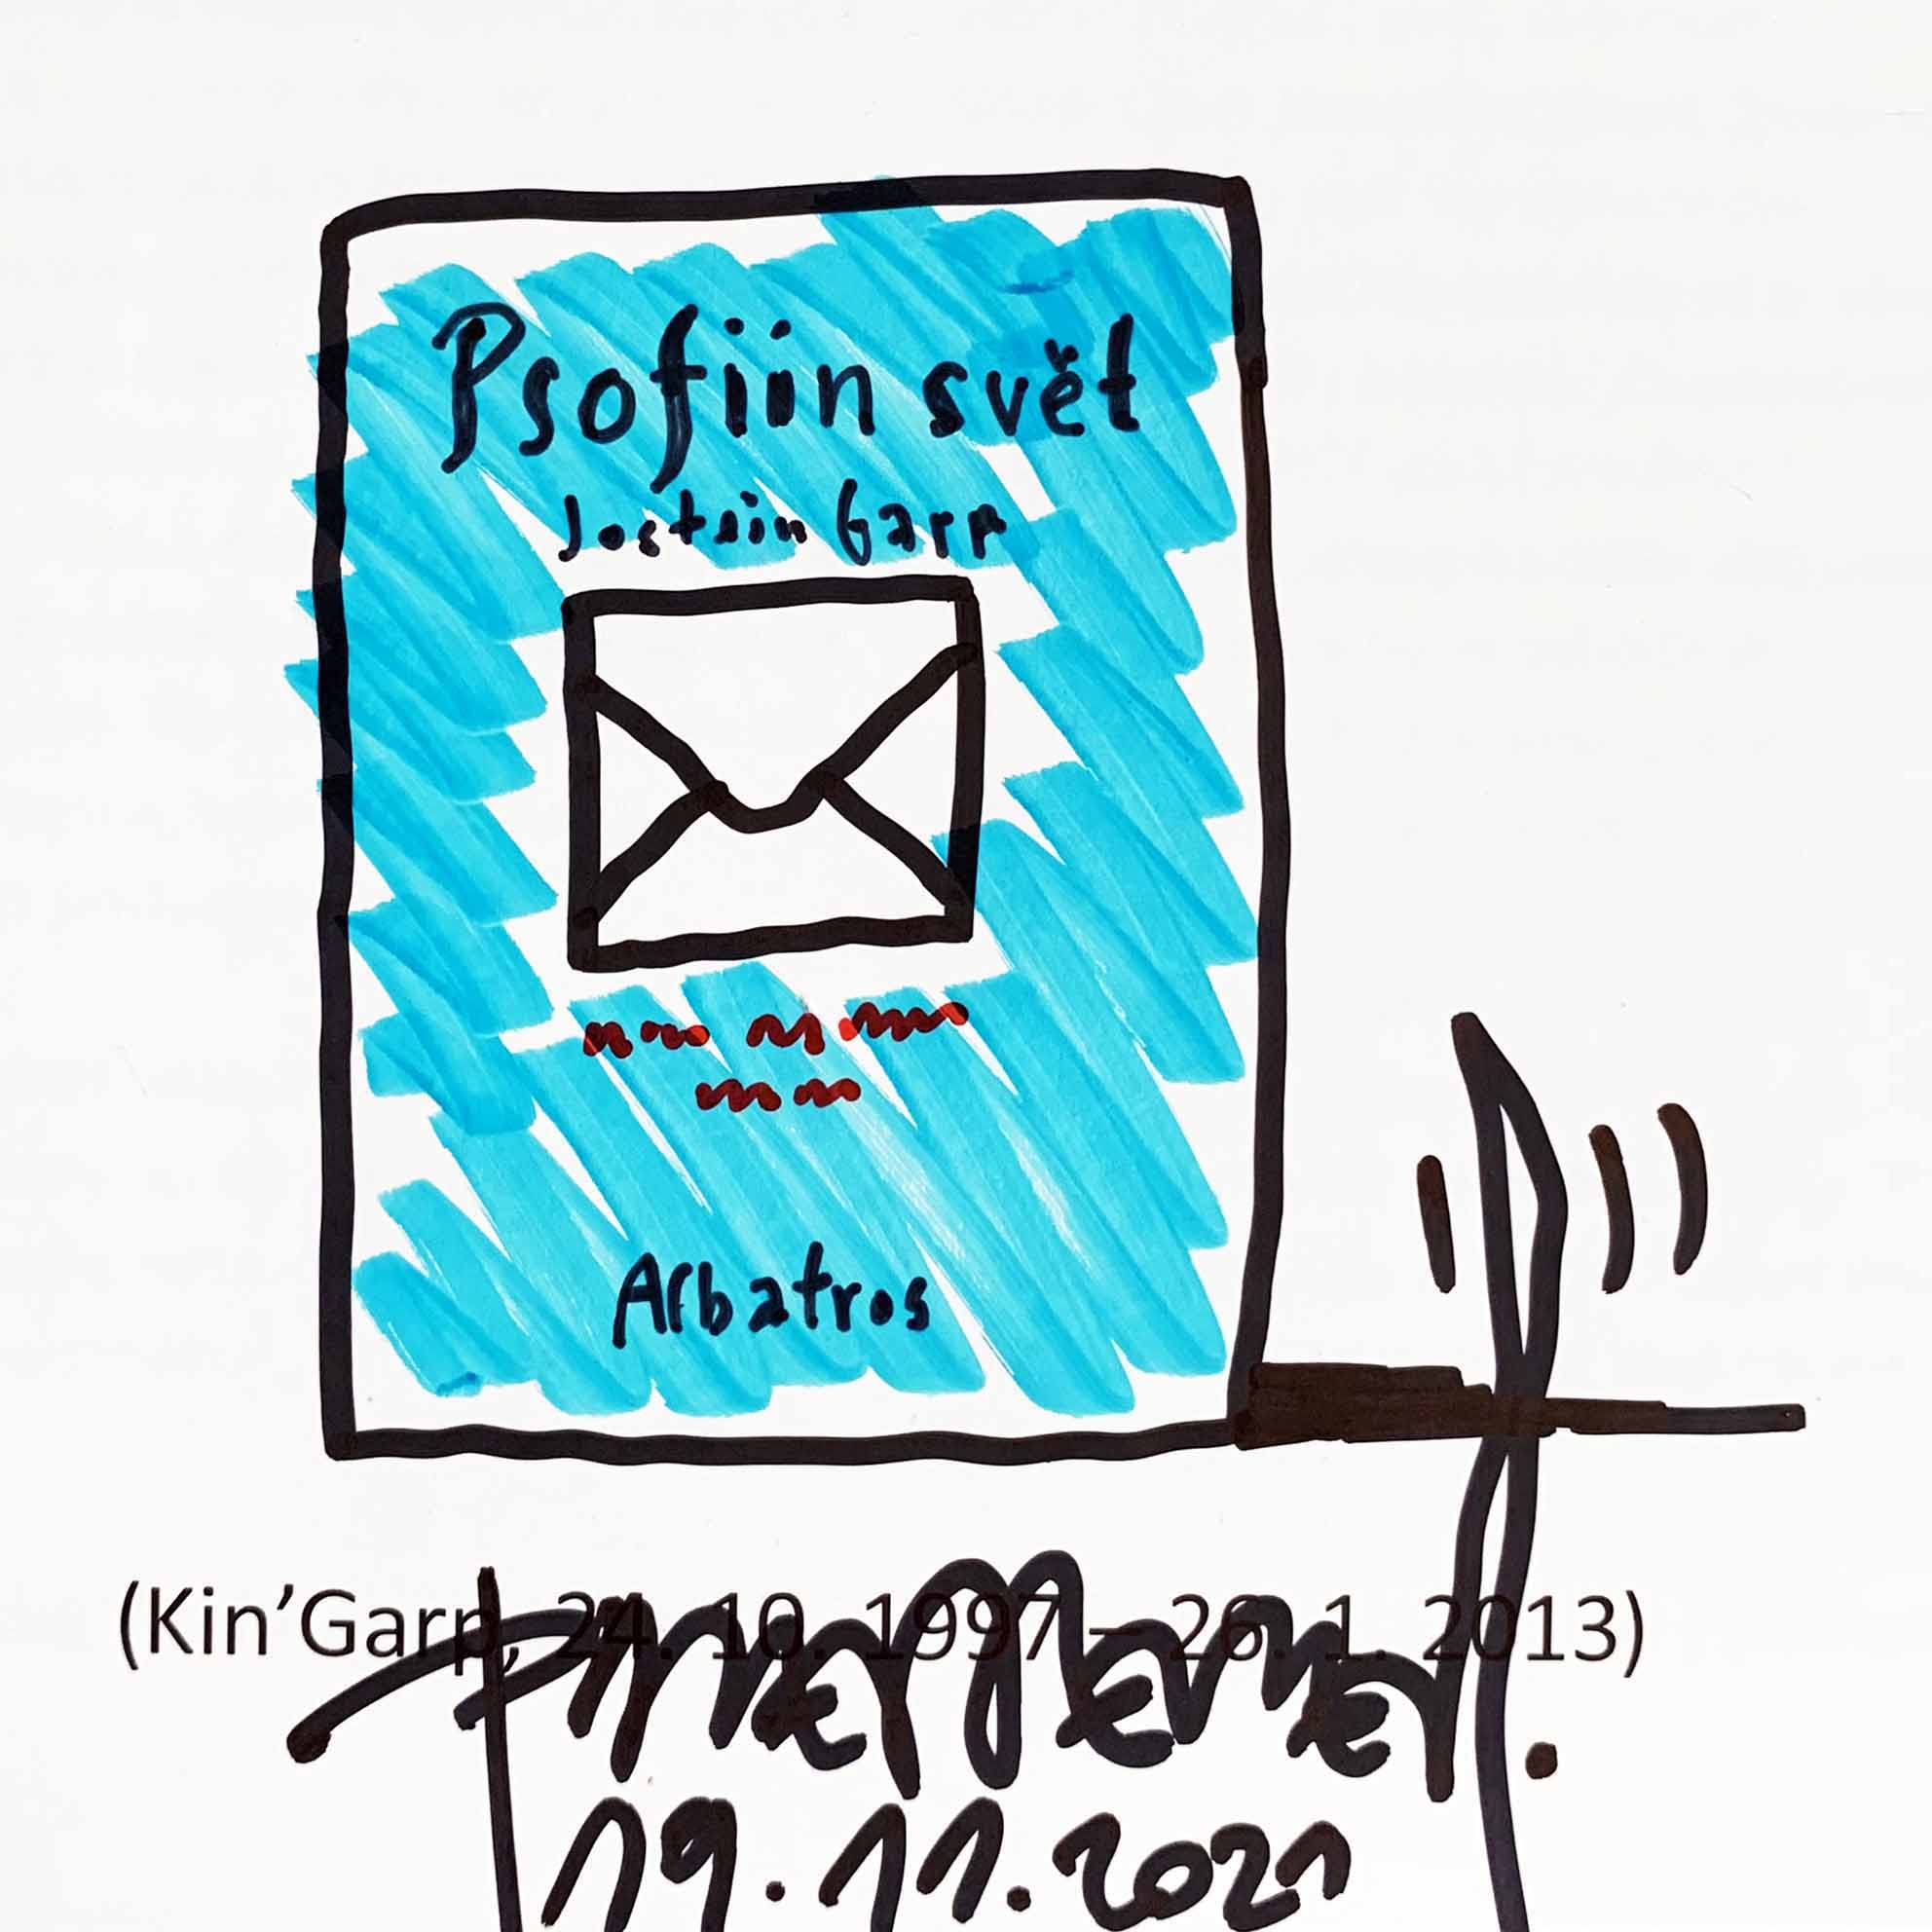 Psofiin svět
Jostein Garp
Albatros
(Kin’Garp, 24. 10. 1997 – 26. 1. 2013)
19.11.2021